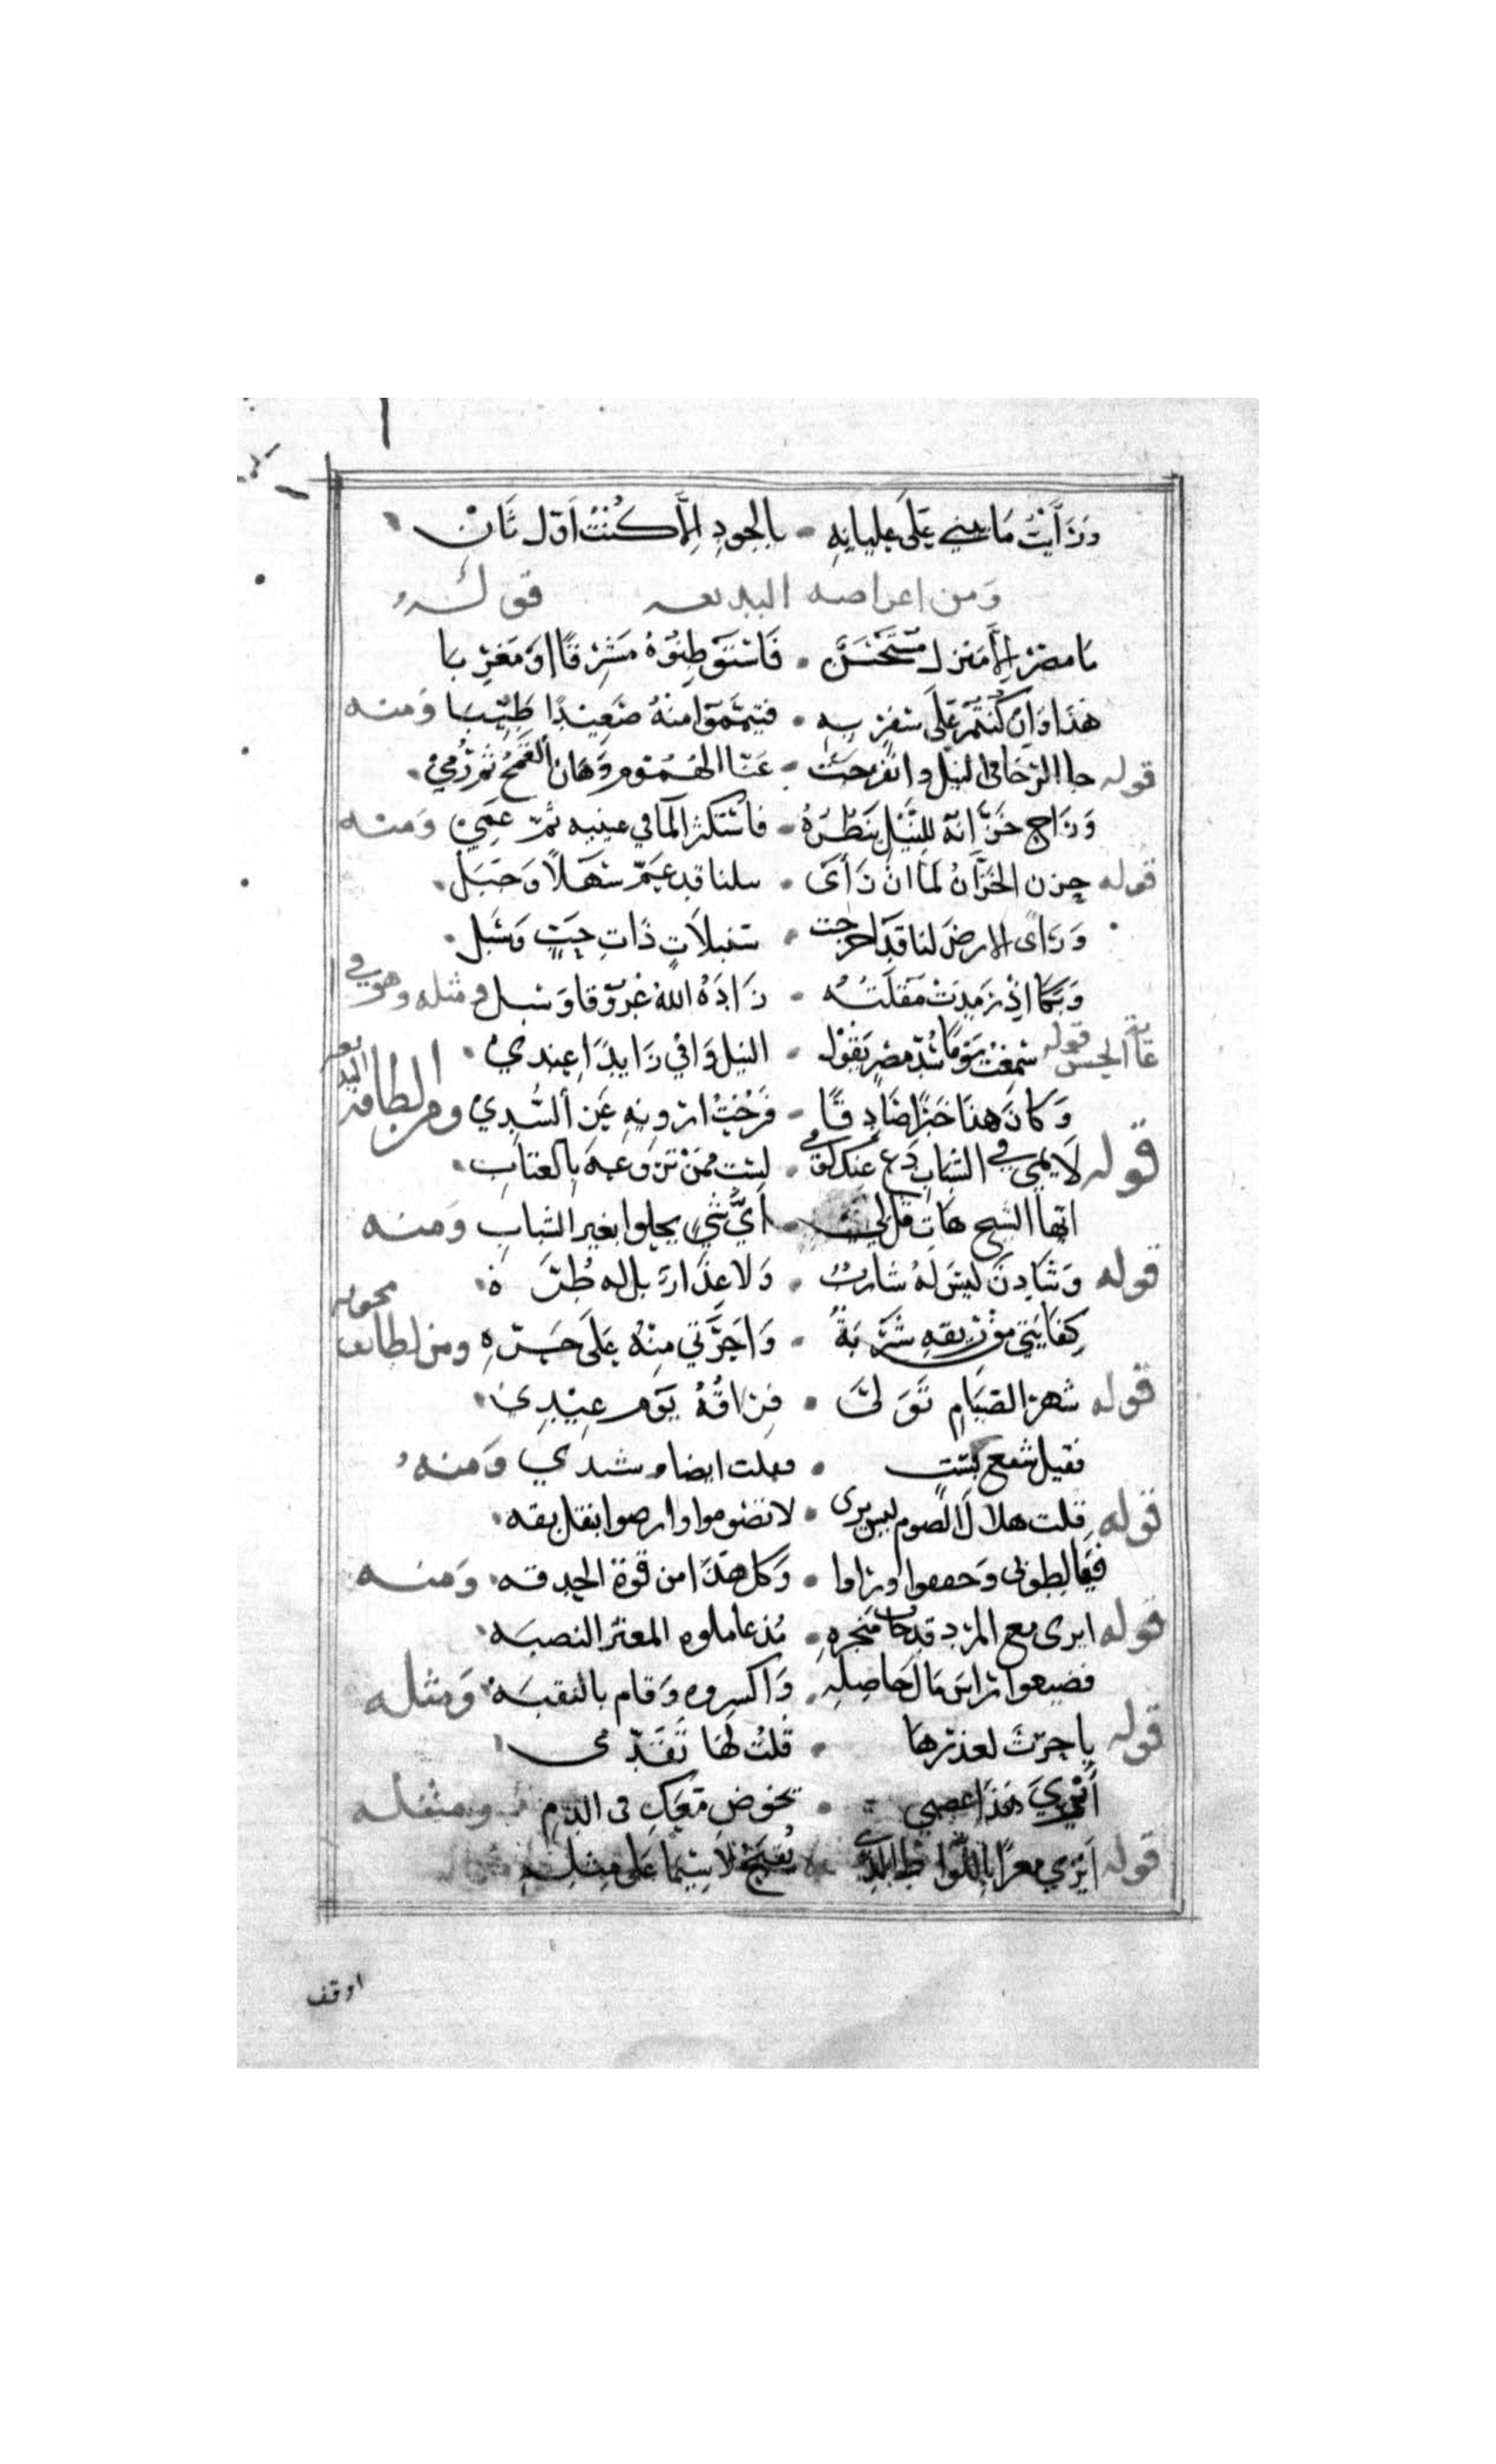 وَرَأَيْتُ مَا يبني عَلَى عليائهِ • بالجودِ إِلَّا كُنْتُ اَوّل ثَانْ
وَمن اغراضه البديعه قوله
مَا مصْر إِلَّا مَنزل مُسْتَحْسَنٌ • فَاسْتَوْطِنُوْهُ مَشْرِقًا اوْ مَغْرِبَا
هَذا وَانْ كُنتُمْ عَلَى سَفَرٍ بِهِ • فتيَمَّمُوْا مِنْهُ صَعِيْدًا طَيِّبَا وَمنه
قوله جا الرّخا في النيل وانفرجت • عَنّا الهُمُوْم وَهَان القَمْحُ ثم رُمِيْ
وَرَاح خَزَّانهُ لِلنِّيْلِ يَنظُرهُ • فاسْتَكثرَ الْمَا في عينيه ثُمّ عَمِيْ وَمنه
قوله حزن الخَزَّانُ لَمّا انْ رَأَى • نيلنا قد عَمَّ سَهْلًا وَجَبَل
وَرَاى الارض لنا قد اخرجت • سنبلاتٍ ذَاتِ حَبٍّ وَسَبَل
وَبَكَا اِذْ رَمِدَتْ مُقْلَتُهُ • زَادَهُ اللهُ عُرُوْقًا وَسَبل ومثله وهو في
غاية الحسن قوله سَمِعْتُ يَوْمًا سُدّ مصْرٍ يَقُوْل • النيل وَافي زَايدًا عِندِيْ
وَكَانَ هذَا خَبَرًا صَادِقًا • فَرُحْتُ ارْوِيْهِ عَنِ السُّدِيْ ومن لطايفه البديعه
قوله لَايمي في الشبابِ دَعْ عَنكَ لَوْمي • لسْت ممَّنْ تَرُوْعهُ بِالعتَابِ
ايّها الشيخ هَاتِ قل لي • اَيُّ شَيْءٍ يحلوا بغير الشبابِ وَمنه
قوله وَشَادِنٍ لَيسَ لَهُ شَاربٌ • وَلَا عِذَارٌ بل له طُرَّهْ
كِفَايَتي منْ رِيقهِ شَرْبَةٌ • وَاحَرَّتي مِنْهُ عَلَى جَرّهِ ومن لطايف مجونه
قوله شهر الصّيَامِ تَوَلَّى • فِرَاقُهُ يَوْم عِيْدِيْ
فقيل شيع بستٍ • فقلت ايضا وسِدي وَمنهُ
قوله قلت هلال الصوم ليس يرى • لا تصُوموا وارضوا بقل بقه
فغالطوني وَحققوا وراوا • وَكل هَذا من قوة الحدقه وَمنه
قوله ايرى مع المرد قد خاب مَتجرهِ • مُذ عاملوه
فضيعوا رَاسَ مَال حَاصِلِهِ • وَاكسروه وَقام بالنقبَهْ وَمثله
قوله يا حرَّث لعذرهَا • قُلْتُ لَهَا تَقَدّمى
اَيْرِيَ هَذَا عصبي • يخوض مَعَكِ فى الدمِ ومثله
قوله اَيْرِي مغرًا بِاللّوَاطِ الذي • يُقبَحُ لَا سِيّمَا عَلى مِثلِهِ
اوقف